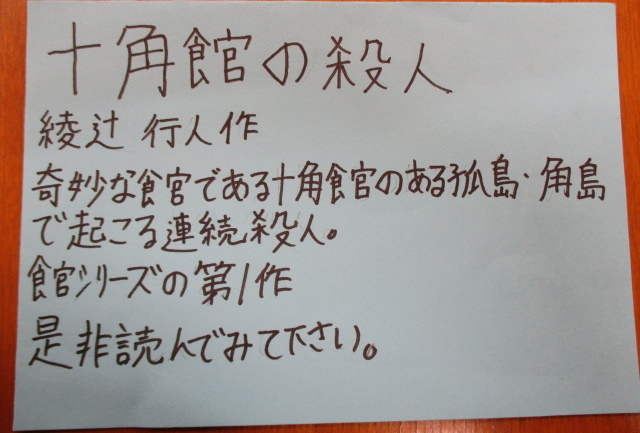 十角館の殺人
綾辻 行人作
奇妙な館である十角館のある孤島・角島
で起こる連続殺人。
館シリーズの第1作
是非読んでみて下さい。